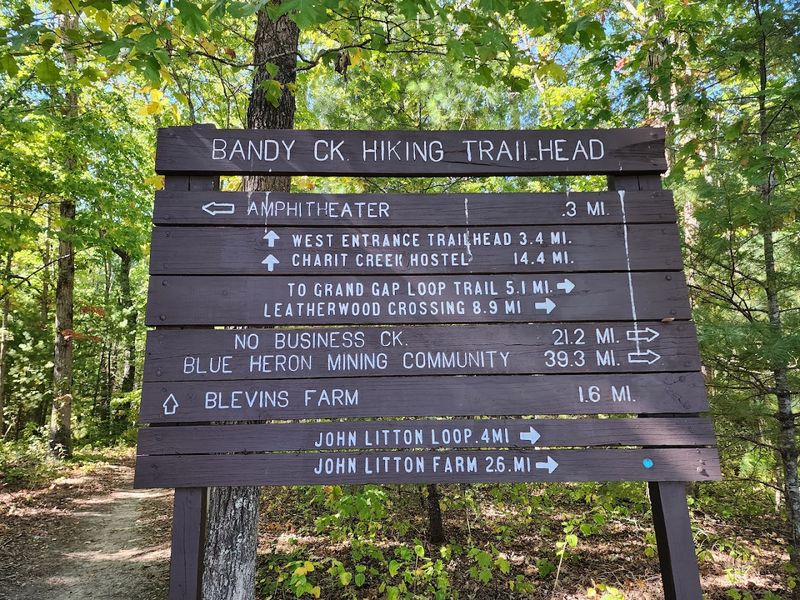 BANDY CK. HIKING TRAILHEAD
AMPHITHEATER .3 MI.
WEST ENTRANCE TRAILHEAD 3.4 MI.
CHARIT CREEK HOSTEL 14.4 MI.
TO GRAND GAP LOOP TRAIL 5.1 MI.
LEATHERWOOD CROSSING 8.9 MI
NO BUSINESS CK. 21.2 MI.
BLUE HERON MINING COMMUNITY 39.3 MI.
BLEVINS FARM 1.6 MI.
JOHN LITTON LOOP .4MI
JOHN LITTON FARM 2.6 MI